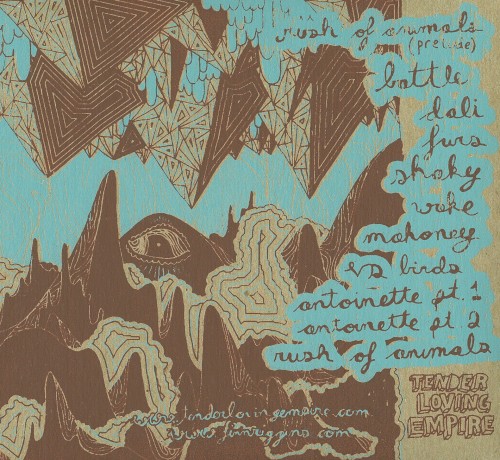 rush of animals
(prelude)
battle
dali
furs
shaky
wake
mahoney
vs birds
antoinette pt. 1
antoinette pt 2
rush of animals
TENDER
LOVING
EMPIRE
www.tenderlovingempire.com
www.finnriggins.com